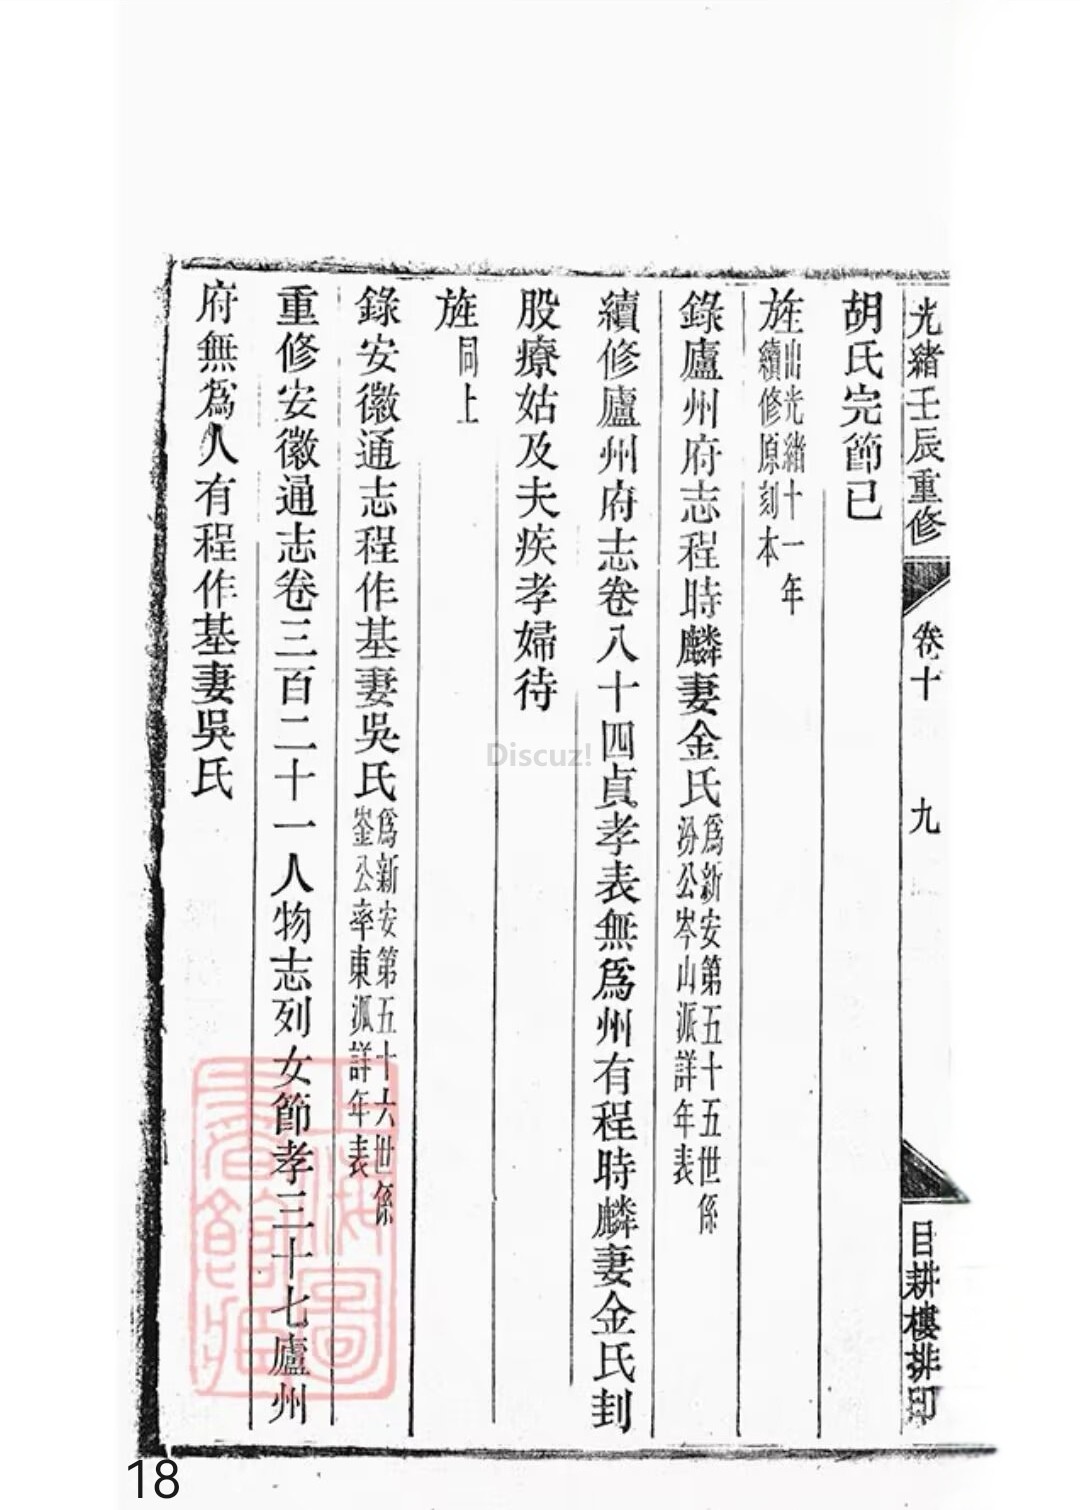 光緒壬辰重修 卷十 九 目耕樓排印
胡氏完節已
旌出光緒十一年
續修原刻本
錄廬州府志程時麟妻金氏爲新安第五十五世係
汾公岑山派詳年表
續修廬州府志卷八十四貞孝表無爲州有程時麟妻金氏刲
股療姑及夫疾孝婦待
旌同上
錄安徽通志程作基妻吳氏爲新安第五十六世係
崟公率東派詳年表
重修安徽通志卷三百二十一人物志列女節孝三十七廬州
府無爲人有程作基妻吳氏
Discuz!
上海圖
書館藏
18